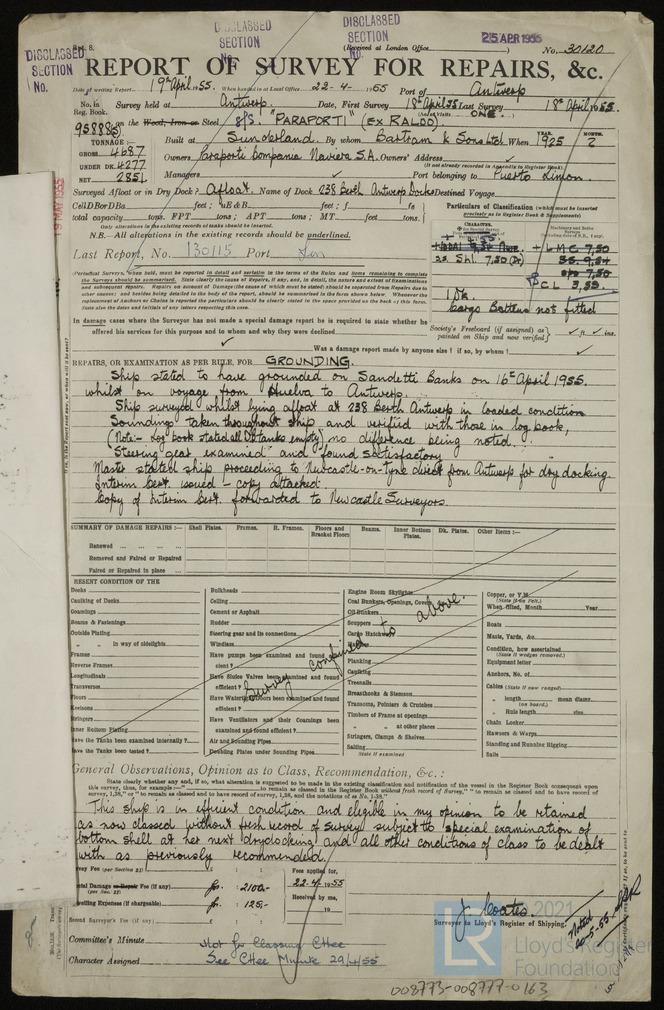 Rpt. 8.
DISCLASSED SECTION No.
DISCLASSED SECTION No.
DISCLASSED SECTION No.
(Received at London Office 25 APR 1955) No. 30120
REPORT OF SURVEY FOR REPAIRS, &c.
Date of writing Report 19th April 1955. When handed in at Local Office 22-4-1955 Port of Antwerp
No. in Reg. Book. Survey held at Antwerp. Date, First Survey 18th April 55 Last Survey 18th April 1955.
(No. of Visits ONE.)
95888(S) on the Wood, Iron or Steel S/S. "PARAPORTI" (EX RALDO)
TONNAGE:—
GROSS 4687
UNDER DK. 4277
NET 2851
Built at Sunderland. By whom Bartram & Sons Ltd. When YEAR. 1925 MONTH. 2
Owners Paraporti Compania Naviera S.A. Owners' Address
(If not already recorded in Appendix to Register Book)
Managers Port belonging to Puerto Limon.
Surveyed Afloat or in Dry Dock? Afloat. Name of Dock 238 Berth Antwerp Docks Destined Voyage
Cell D Bor D Ba feet; uE&B feet; f fe
total capacity tons. FPT tons; APT tons; MT feet tons.
Only alterations in the existing records of tanks should be inserted.
N.B.—All alterations in the existing records should be underlined.
Last Report, No. 130115 Port
Particulars of Classification (which must be inserted precisely as in Register Book & Supplements)
CHARACTER.
Machinery and Boiler Surveys
+ LMC 7,50
CL 3,53.
1 Dk.
Cargo Battens not fitted
Society's Freeboard (if assigned) as painted on Ship and now verified ft. ins.
In damage cases where the Surveyor has not made a special damage report he is required to state whether he
offered his services for this purpose and to whom and why they were declined
Was a damage report made by anyone else? if so, by whom?
REPAIRS, OR EXAMINATION AS PER RULE, FOR GROUNDING.
Ship stated to have grounded on Sandetti Banks on 16th April 1955.
whilst on voyage from Huelva to Antwerp.
Ship surveyed whilst lying afloat at 238 Berth Antwerp in loaded condition
Soundings taken throughout ship and verified with those in log book,
(Note:- Log book stated all DB tanks empty) no difference being noted.
Steering gear examined and found satisfactory
Master stated ship proceeding to Newcastle-on-Tyne direct from Antwerp for dry docking.
Interim Cert. issued – copy attached.
Copy of Interim Cert. forwarded to Newcastle Surveyors.
SUMMARY OF DAMAGE REPAIRS:— Shell Plates. Frames. R. Frames. Floors and Bracket Floors Beams. Inner Bottom Plates. Dk. Plates. Other Items:—
Renewed
Removed and Faired or Repaired
Faired or Repaired in place
RESENT CONDITION OF THE
Decks
Caulking of Decks
Coamings
Beams & Fastenings
Outside Plating
" " in way of sidelights
Frames
Reverse Frames
Longitudinals
Transverses
Floors
Keelsons
Stringers
Inner Bottom Plating
Have the Tanks been examined internally?
Have the Tanks been tested?
Bulkheads
Ceiling
Cement or Asphalt
Rudder
Steering gear and its connections
Windlass
Have pumps been examined and found efficient?
Have Sluice Valves been examined and found efficient?
Have Watertight Doors been examined and found efficient?
Have Ventilators and their Coamings been examined and found efficient?
Air and Sounding Pipes
Doubling Plates under Sounding Pipes
Engine Room Skylights
Coal Bunkers, Openings, Covers
Oil Bunkers
Scuppers
Cargo Hatchways
Planking
Caulking
Treenails
Breasthooks & Stemson
Transoms, Pointers & Crutches
Timbers of Frame at openings
" " at other places
Stringers, Clamps & Shelves
Salting
State if examined
Copper, or Y.M.
(State if on Felt.)
When fitted, Month Year
Boats
Masts, Yards, &c.
Condition, how ascertained
(State if wedges removed.)
Equipment letter
Anchors, No. of
Cables (State if now ranged)
" length mean diamr.
(on board.)
" Rule length size
Chain Locker
Hawsers & Warps
Standing and Running Rigging
Sails
Survey confined to above.
General Observations, Opinion as to Class, Recommendation, &c.:—
State clearly whether any and, if so, what alteration is suggested to be made in the existing classification and notification of the vessel in the Register Book consequent upon
This ship is in efficient condition and eligible in my opinion to be retained
as now classed without fresh record of survey subject to special examination of
bottom shell at her next drydocking and all other conditions of class to be dealt
with as previously recommended.
Survey Fee (per Section 23)
Special Damage or Repair Fee (if any) fr. 2100-
(per Sec. 23)
Travelling Expenses (if chargeable) fr. 125,-
Second Surveyor's Fee (if any)
Fees applied for,
22-4-1955
Received by me,
19
J. Coates.
Surveyor to Lloyd's Register of Shipping.
Noted
Committee's Minute Not for Classing Cttee
Character Assigned See Cttee Minute 29/4/55
19 MAY 1955
2021
LR
Lloyd's Register Foundation
008773-008777-0163